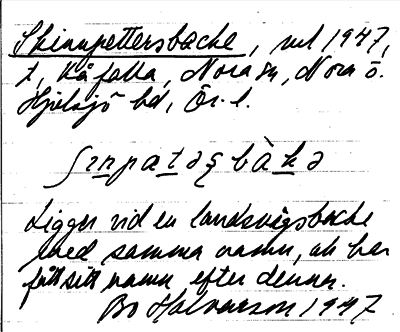 Skinnpettersbacke, 1947,
t, Kåfalla, Nora sn, Nora o.
Hjulsjö bd, Ör. l.
ʃɪnpatəʂbàkə
Ligger vid en landsvägsbacke
med samma namn, och har
fått sitt namn efter denna.
Bo Halvarson 1947